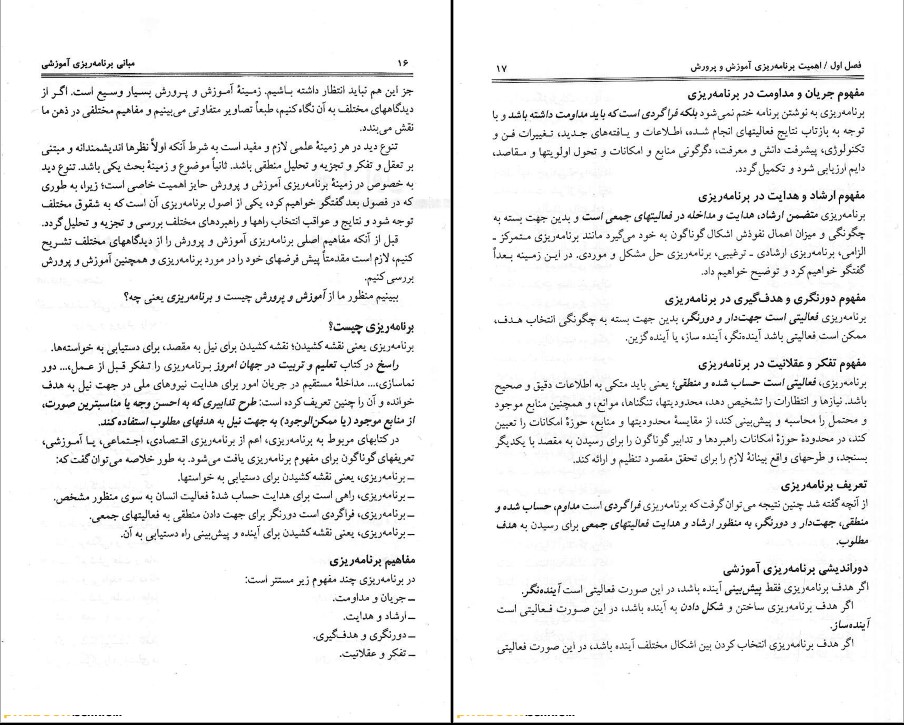 ۱۶ مبانی برنامه‌ریزی آموزشی
جز این هم نباید انتظار داشته باشیم. زمینهٔ آموزش و پرورش بسیار وسیع است. اگر از
دیدگاههای مختلف به آن نگاه کنیم، طبعاً تصاویر متفاوتی می‌بینیم و مفاهیم مختلفی در ذهن ما
نقش می‌بندد.
تنوع دید در هر زمینهٔ علمی لازم و مفید است به شرط آنکه اولاً نظرها اندیشمندانه و مبتنی
بر تعقل و تفکر و تجزیه و تحلیل منطقی باشد. ثانیاً موضوع و زمینهٔ بحث یکی باشد. تنوع دید
به خصوص در زمینهٔ برنامه‌ریزی آموزش و پرورش حایز اهمیت خاصی است؛ زیرا، به طوری
که در فصول بعد گفتگو خواهیم کرد، یکی از اصول برنامه‌ریزی آن است که به شقوق مختلف
توجه شود و نتایج و عواقب انتخاب راهها و راهبردهای مختلف بررسی و تجزیه و تحلیل گردد.
قبل از آنکه مفاهیم اصلی برنامه‌ریزی آموزش و پرورش را از دیدگاههای مختلف تشریح
کنیم، لازم است مقدمتاً پیش فرضهای خود را در مورد برنامه‌ریزی و همچنین آموزش و پرورش
بررسی کنیم.
ببینیم منظور ما از آموزش و پرورش چیست و برنامه‌ریزی یعنی چه؟
برنامه‌ریزی چیست؟
برنامه‌ریزی یعنی نقشه کشیدن؛ نقشه کشیدن برای نیل به مقصد، برای دستیابی به خواسته‌ها.
راسخ در کتاب تعلیم و تربیت در جهان امروز برنامه‌ریزی را تفکر قبل از عمل،... دور
نماسازی،... مداخلهٔ مستقیم در جریان امور برای هدایت نیروهای ملی در جهت نیل به هدف
خوانده و آن را چنین تعریف کرده است: طرح تدابیری که به احسن وجه یا مناسبترین صورت،
از منابع موجود (یا ممکن‌الوجود) به جهت نیل به هدفهای مطلوب استفاده کند.
در کتابهای مربوط به برنامه‌ریزی، اعم از برنامه‌ریزی اقتصادی، اجتماعی، یا آموزشی،
تعریفهای گوناگون برای مفهوم برنامه‌ریزی یافت می‌شود. به طور خلاصه می‌توان گفت که:
ــ برنامه‌ریزی، یعنی نقشه کشیدن برای دستیابی به خواستها.
ــ برنامه‌ریزی، راهی است برای هدایت حساب شدهٔ فعالیت انسان به سوی منظور مشخص.
ــ برنامه‌ریزی، فراگردی است دورنگر برای جهت دادن منطقی به فعالیتهای جمعی.
ــ برنامه‌ریزی، یعنی نقشه کشیدن برای آینده و پیش‌بینی راه دستیابی به آن.
مفاهیم برنامه‌ریزی
در برنامه‌ریزی چند مفهوم زیر مستتر است:
ــ جریان و مداومت.
ــ ارشاد و هدایت.
ــ دورنگری و هدف‌گیری.
ــ تفکر و عقلانیت.
فصل اول / اهمیت برنامه‌ریزی آموزش و پرورش ۱۷
مفهوم جریان و مداومت در برنامه‌ریزی
برنامه‌ریزی به نوشتن برنامه ختم نمی‌شود بلکه فراگردی است که باید مداومت داشته باشد و با
توجه به بازتاب نتایج فعالیتهای انجام شده، اطلاعات و یافته‌های جدید، تغییرات فن و
تکنولوژی، پیشرفت دانش و معرفت، دگرگونی منابع و امکانات و تحول اولویتها و مقاصد،
دایم ارزیابی شود و تکمیل گردد.
مفهوم ارشاد و هدایت در برنامه‌ریزی
برنامه‌ریزی متضمن ارشاد، هدایت و مداخله در فعالیتهای جمعی است و بدین جهت بسته به
چگونگی و میزان اعمال نفوذش اشکال گوناگون به خود می‌گیرد مانند برنامه‌ریزی متمرکز ـ
الزامی، برنامه‌ریزی ارشادی ـ ترغیبی، برنامه‌ریزی حل مشکل و موردی. در این زمینه بعداً
گفتگو خواهیم کرد و توضیح خواهیم داد.
مفهوم دورنگری و هدف‌گیری در برنامه‌ریزی
برنامه‌ریزی فعالیتی است جهت‌دار و دورنگر، بدین جهت بسته به چگونگی انتخاب هدف،
ممکن است فعالیتی باشد آینده‌نگر، آینده ساز، یا آینده گزین.
مفهوم تفکر و عقلانیت در برنامه‌ریزی
برنامه‌ریزی، فعالیتی است حساب شده و منطقی؛ یعنی باید متکی به اطلاعات دقیق و صحیح
باشد. نیازها و انتظارات را تشخیص دهد، محدودیتها، تنگناها، موانع، و همچنین منابع موجود
و محتمل را محاسبه و پیش‌بینی کند، از مقایسهٔ محدودیتها و منابع، حوزهٔ امکانات را تعیین
کند، در محدودهٔ حوزهٔ امکانات راهبردها و تدابیر گوناگون را برای رسیدن به مقصد با یکدیگر
بسنجد، و طرحهای واقع بینانهٔ لازم را برای تحقق مقصود تنظیم و ارائه کند.
تعریف برنامه‌ریزی
از آنچه گفته شد چنین نتیجه می‌توان گرفت که برنامه‌ریزی فراگردی است مداوم، حساب شده و
منطقی، جهت‌دار و دورنگر، به منظور ارشاد و هدایت فعالیتهای جمعی برای رسیدن به هدف
مطلوب.
دوراندیشی برنامه‌ریزی آموزشی
اگر هدف برنامه‌ریزی فقط پیش‌بینی آینده باشد، در این صورت فعالیتی است آینده‌نگر.
اگر هدف برنامه‌ریزی ساختن و شکل دادن به آینده باشد، در این صورت فعالیتی است
آینده‌ساز.
اگر هدف برنامه‌ریزی انتخاب کردن بین اشکال مختلف آینده باشد، در این صورت فعالیتی